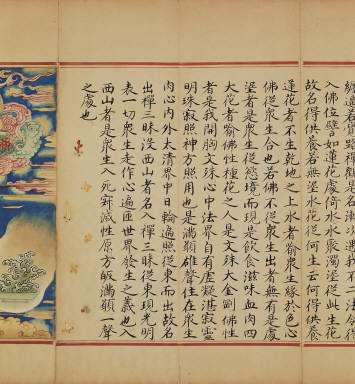 纏遮若實路禪觀是名漸次遇我不二法令得
入佛位譬如蓮花處倚水水聚濁埿從此生花
故名得供養若無埿水花從何生云何得供養
蓮花者不生乾地之上水者喻衆生緣於色心
佛從衆生合也若佛不從衆生出者無有是處
埿者是衆生從慾境而現是飲食滋味血肉四
大花者喻佛性種花之人是文殊大金剛佛性
者是我開胸文殊心中法界自有虛凝湛寂靈
明珠寂照神方照用也是滿額雄聲住在衆生
肉心內外太清界中日輪遍照從東而出故名
出禪三昧沒西山者名入禪三昧從東現光明
表一切衆生走作心遍匝世界發生之義也入
西山者是衆生入死寂滅性原方皈滿額一聲
之處也